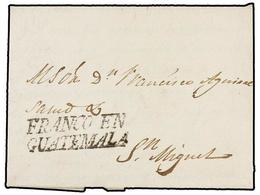 Al Sōr Dn Francisco Aguirre
FRANCO EN
GUATEMALA
Sn Miguel